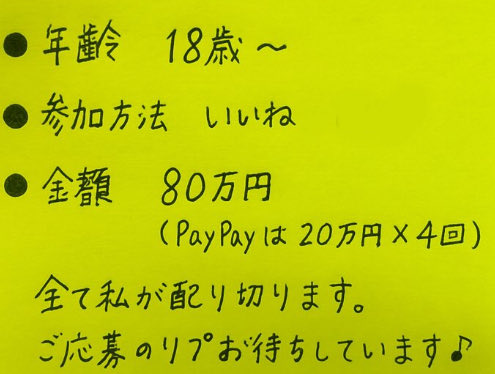 ● 年齢　18歳～
● 参加方法　いいね
● 金額　80万円
(PayPayは20万円×4回)
全て私が配り切ります。
ご応募のリプお待ちしています♪